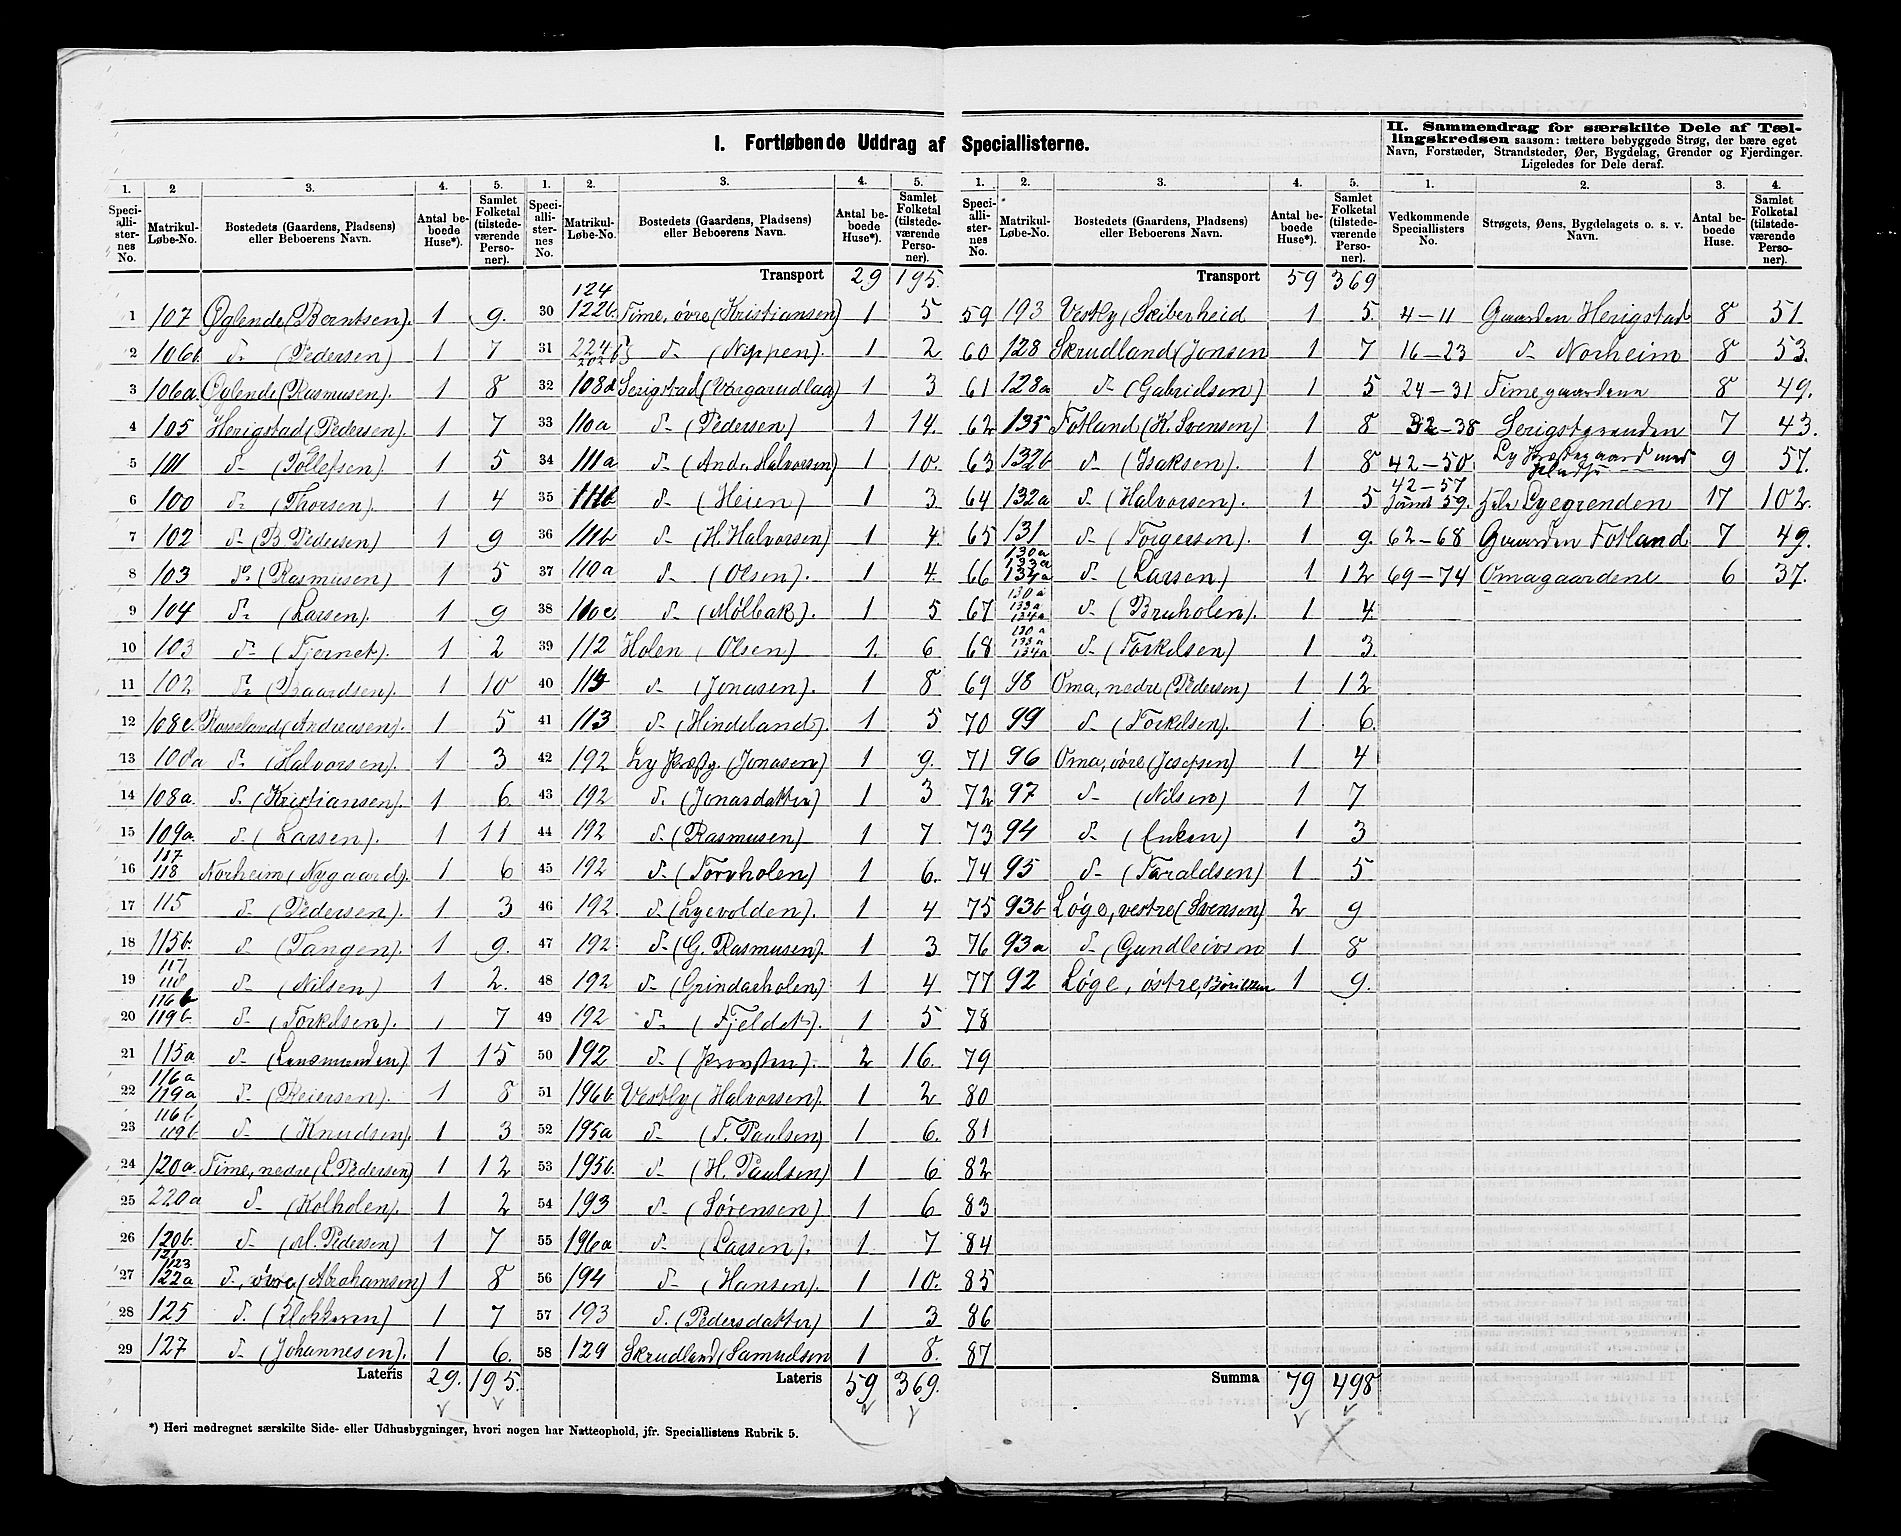 I. Fortløbende Uddrag af Speciallisterne.
II. Sammendrag for særskilte Dele af Tæl-
lingskredsen saasom: tættere bebyggede Strøg, der bære eget
Navn, Forstæder, Strandsteder, Øer, Bygdelag, Grender og Fjerdinger.
Ligeledes for Dele deraf.
1. 2 3. 4. 5.
Speciallisternes No. Matrikul-Løbe-No. Bostedets (Gaardens, Pladsens) eller Beboerens Navn. Antal beboede Huse*). Samlet Folketal (tilstedeværende Personer).
1 107 Øglende (Berntsen). 1 9.
2 106b. d- (Pedersen) 1 7
3 106a. Øglende (Rasmusen). 1 8
4 105 Herigstad (Pedersen). 1 7
5 101 d- (Tollefsen) 1 5
6 100 d- (Thorsen). 1 4
7 102 d- (B Pedersen) 1 9
8 103 do (Rasmusen) 1 5
9 104 d- (Larsen). 1 9
10 103 d- (Tjernet). 1 2
11 102 d- 1 10
12 108c. Rosseland (Andreasen). 1 5
13 108a d- (Halvorsen). 1 3
14 108a. d. (Kristiansen). 1 6
15 109a. d- (Larsen). 1 11
16 117 118 Norheim (Nygaard). 1 6
17 115 d- (Pedersen). 1 3
18 115b. d- (Tangen). 1 9.
19 117 118 d- (Nilsen) 1 2.
20 116b 119b. d- (Torkelsen). 1 7
21 115a d- (Lensmanden) 1 15
22 116a 119a d- (Reiersen). 1 8
23 116b. 119b d- (Knudsen). 1 3
24 120a. Time, nedre (L Pedersen) 1 12
25 220a d- (Kolholen). 1 2
26 120b. d- (M. Pedersen) 1 7
27 121 123 122a d-, øvre (Abrahamsen) 1 8
28 125 d. (Klokkeren) 1 7
29 127 d- (Johannesen). 1 6.
Lateris 29. 195.
1. 2. 3. 4. 5.
Speciallisternes No. Matrikul-Løbe-No. Bostedets (Gaardens, Pladsens) eller Beboerens Navn. Antal beboede Huse*). Samlet Folketal (tilstedeværende Personer).
Transport 29 195.
30 124 122b. Time, øvre (Kristiansen) 1 5
31 224b d- (Nippen). 1 2
32 108d Serigstad (Vargarudlag) 1 3
33 110a d- (Pedersen) 1 14.
34 111a d- (And. Halvorsen) 1 10.
35 111b d- (Heien) 1 3.
36 111b d- (H. Halvorsen) 1 4.
37 110a d- (Olsen). 1 4.
38 110c. d- (Mølbak). 1 5
39 112 Holen (Olsen) 1. 6.
40 113 d- (Jonasen). 1 8
41 113 d- (Hindeland). 1 5
42 192 Ly Præstg. (Jonasen) 1 9.
43 192 d. (Jonasdatter) 1 3
44 192 d- (Rasmusen) 1 7
45 192 d- (Torvholen) 1 6.
46 192. d- (Lyevolden). 1 4
47 192. d- (G. Rasmusen). 1 3
48 192 d- (Grindarholen) 1 4
49 192 d- (Fjeldet). 1 5
50 192 d- (Provsten). 2 16.
51 196b. Vestly (Halvorsen). 1 2
52 195a d- (T. Paulsen) 1 6.
53 195b. d- (H. Paulsen) 1 6
54 193 d- (Sørensen) 1 6
55 196a d- (Larsen). 1 7
56 194 d- (Hansen). 1 10.
57 193 d. (Pedersdatter) 1 3
58 129 Skrudland (Samuelsen 1 8.
Lateris 59 369.
1. 2. 3. 4. 5.
Speciallisternes No. Matrikul-Løbe-No. Bostedets (Gaardens, Pladsens) eller Beboerens Navn. Antal beboede Huse*). Samlet Folketal (tilstedeværende Personer).
Transport 59 369
59 193 Vestly (Skiberheid 1 5.
60 128 Skrudland (Jonsen 1 7
61 128a d- (Gabrielsen) 1 5
62 135 Fotland (K. Svensen) 1 8
63 132b d- (Isaksen). 1 8
64 132a d- (Halvorsen). 1 5
65 131 d- (Torgersen). 1 9.
66 130a 133a 134a d- (Larsen) 1 12
67 130a 133a 134a d- (Bruholen). 1 4.
68 130a 133a 134a d- (Torkelsen) 1 3.
69 98 Oma, nedre (Pedersen) 1 12
70 99 d- (Torkelsen). 1 6.
71 96 Oma, øvre (Josefsen) 1 4
72 97 d- (Nilsen) 1 7
73 94 d- (Enken) 1 3
74 95 d- (Taraldsen) 1 5
75 93b Løge, vestre (Svensen) 2 9
76 93a d- (Gundleivsen 1 8
77 92 Løge, østre, 1 9.
78
79
80
81
82
83
84
85
86
87
Summa 79 498
1. 2. 3. 4.
Vedkommende Speciallisters No. Strøgets, Øens, Bygdelagets o. s. v. Navn. Antal beboede Huse. Samlet Folketal (tilstedeværende Personer).
4-11 Gaarden Herigstad 8 51
16-23 d- Norheim 8 53.
24-31 Timegaardene 8 49.
32-38 Serigstgrenden 7 43.
42-50 Ly Præstegaard med 9 57.
42-57 samt 59. hele Lyegrenden 17 102.
62-68 Gaarden Fotland 7 49.
69-74 Omagaardene 6 37.
*) Heri medregnet særskilte Side- eller Udhusbygninger, hvori nogen har Natteophold, jfr. Speciallistens Rubrik 5.